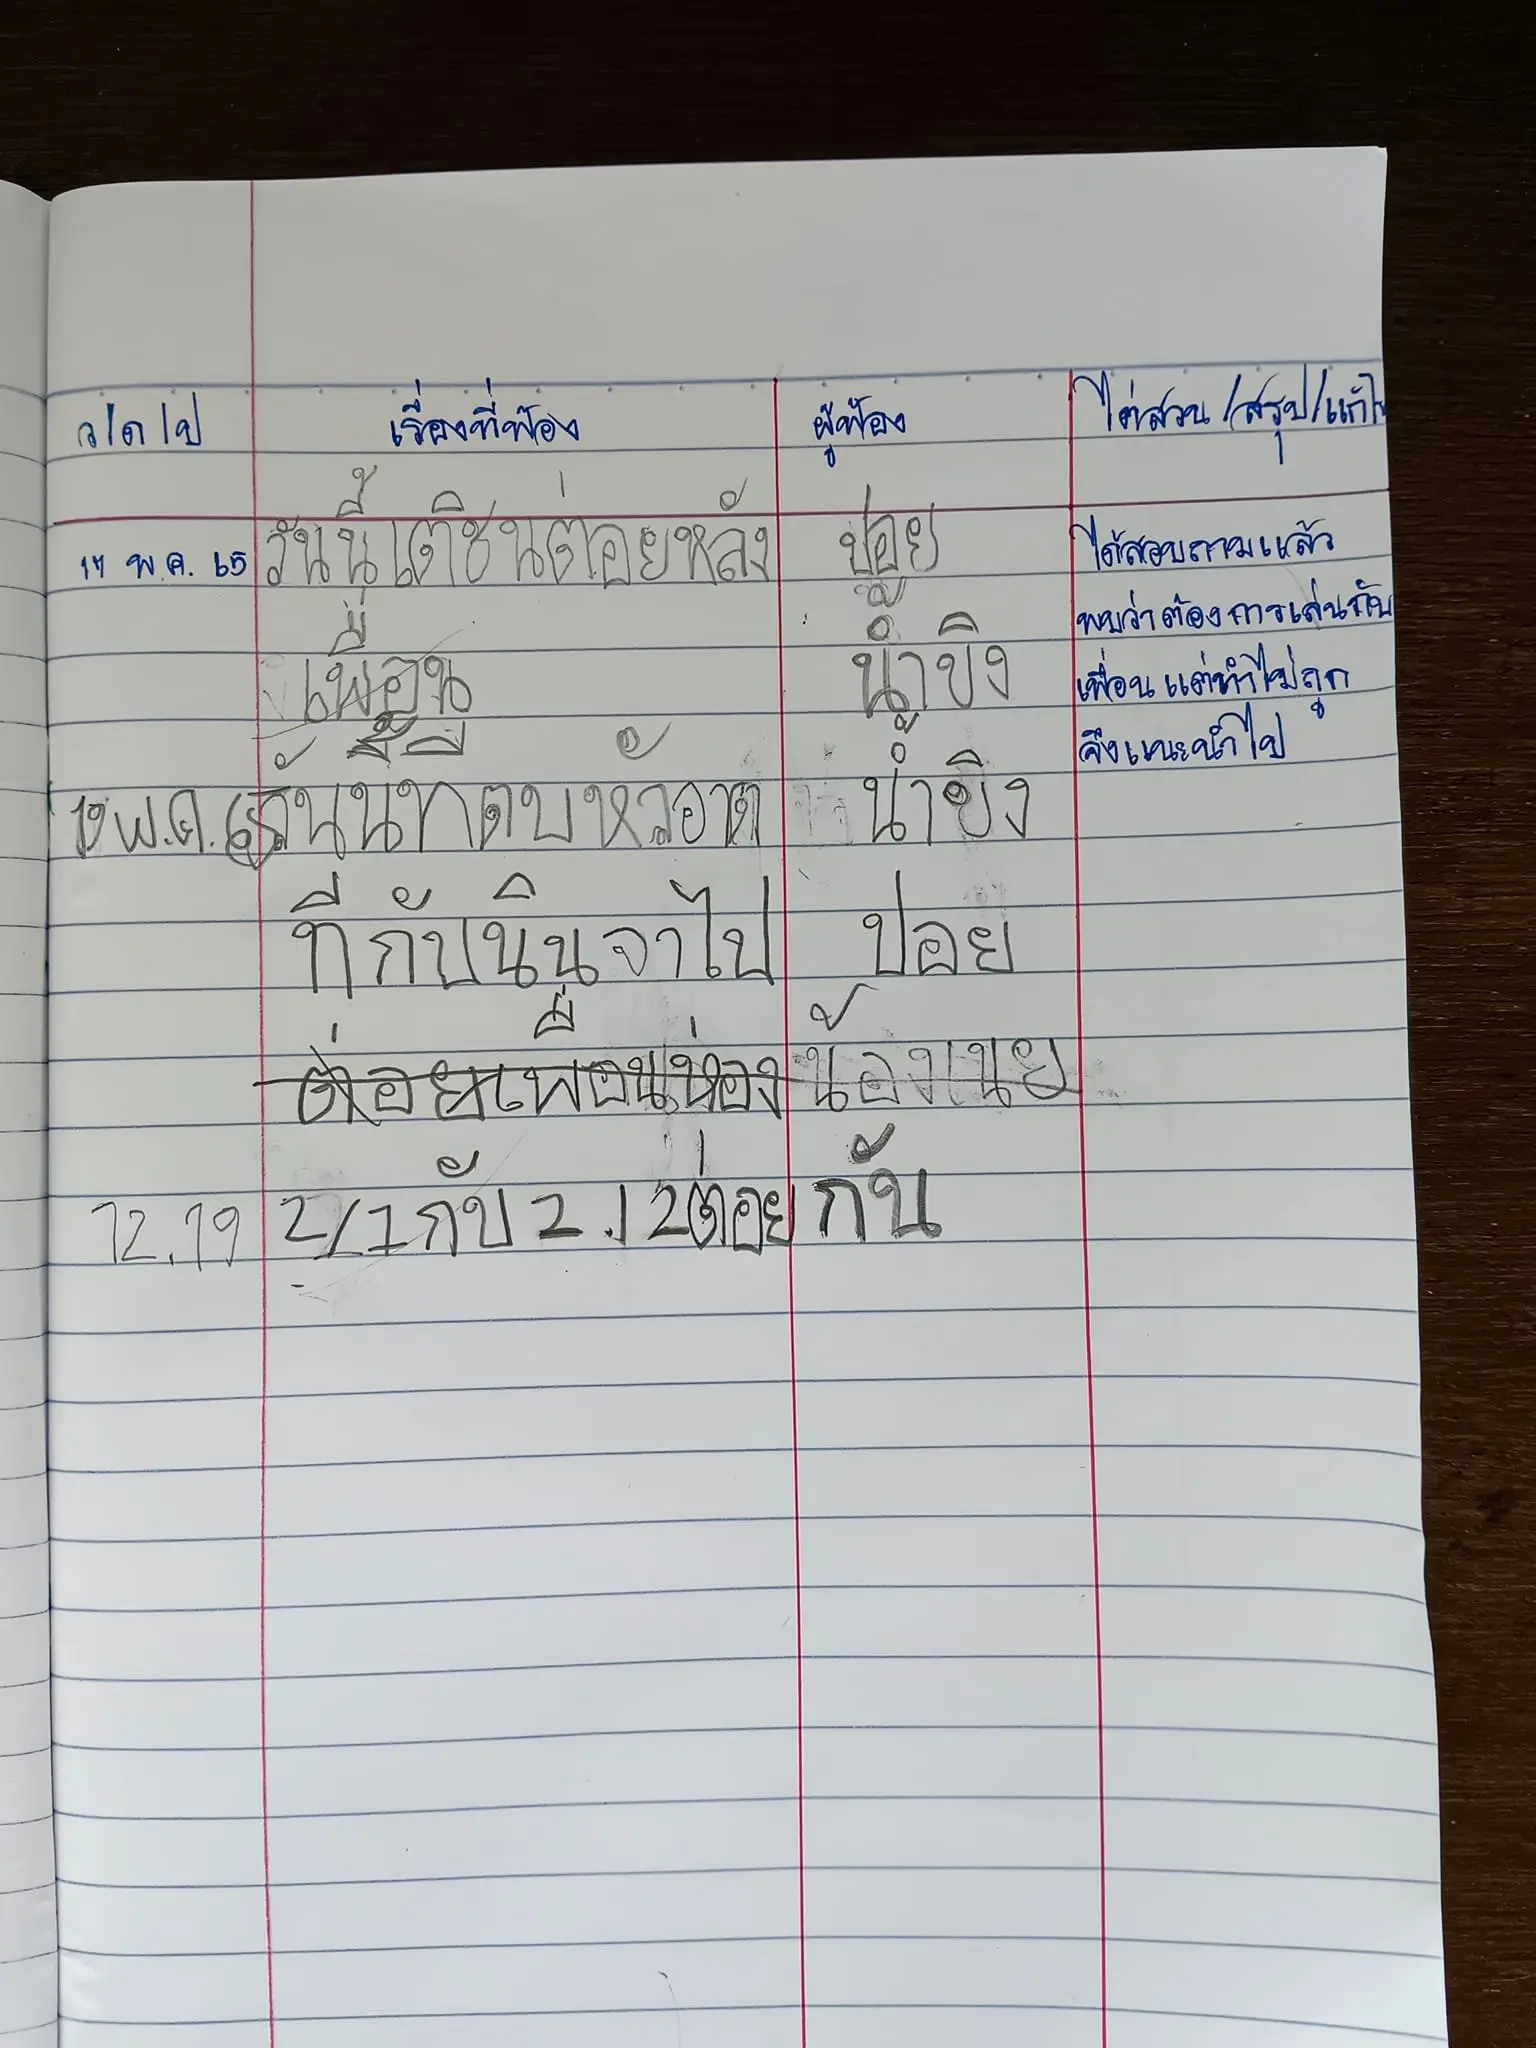 ว/ด/ป เรื่องที่ฟ้อง ผู้ฟ้อง ไต่สวน/สรุป/แก้ไข
17 พ.ค. 65 วันนี้เตชินต่อยหลัง ปอย ได้สอบถามแล้ว
เพื่อน น้ำขิง พบว่าต้องการเล่นกับ
เพื่อน แต่ทำไม่ถูก
จึงแนะนำไป
พ.ค. วันนี้ น้ำขิง
ที่กับนินจาไป ปอย
ต่อยเพื่อนห่อง น้องเนย
12.19 2/1กับ2./2ต่อยกัน